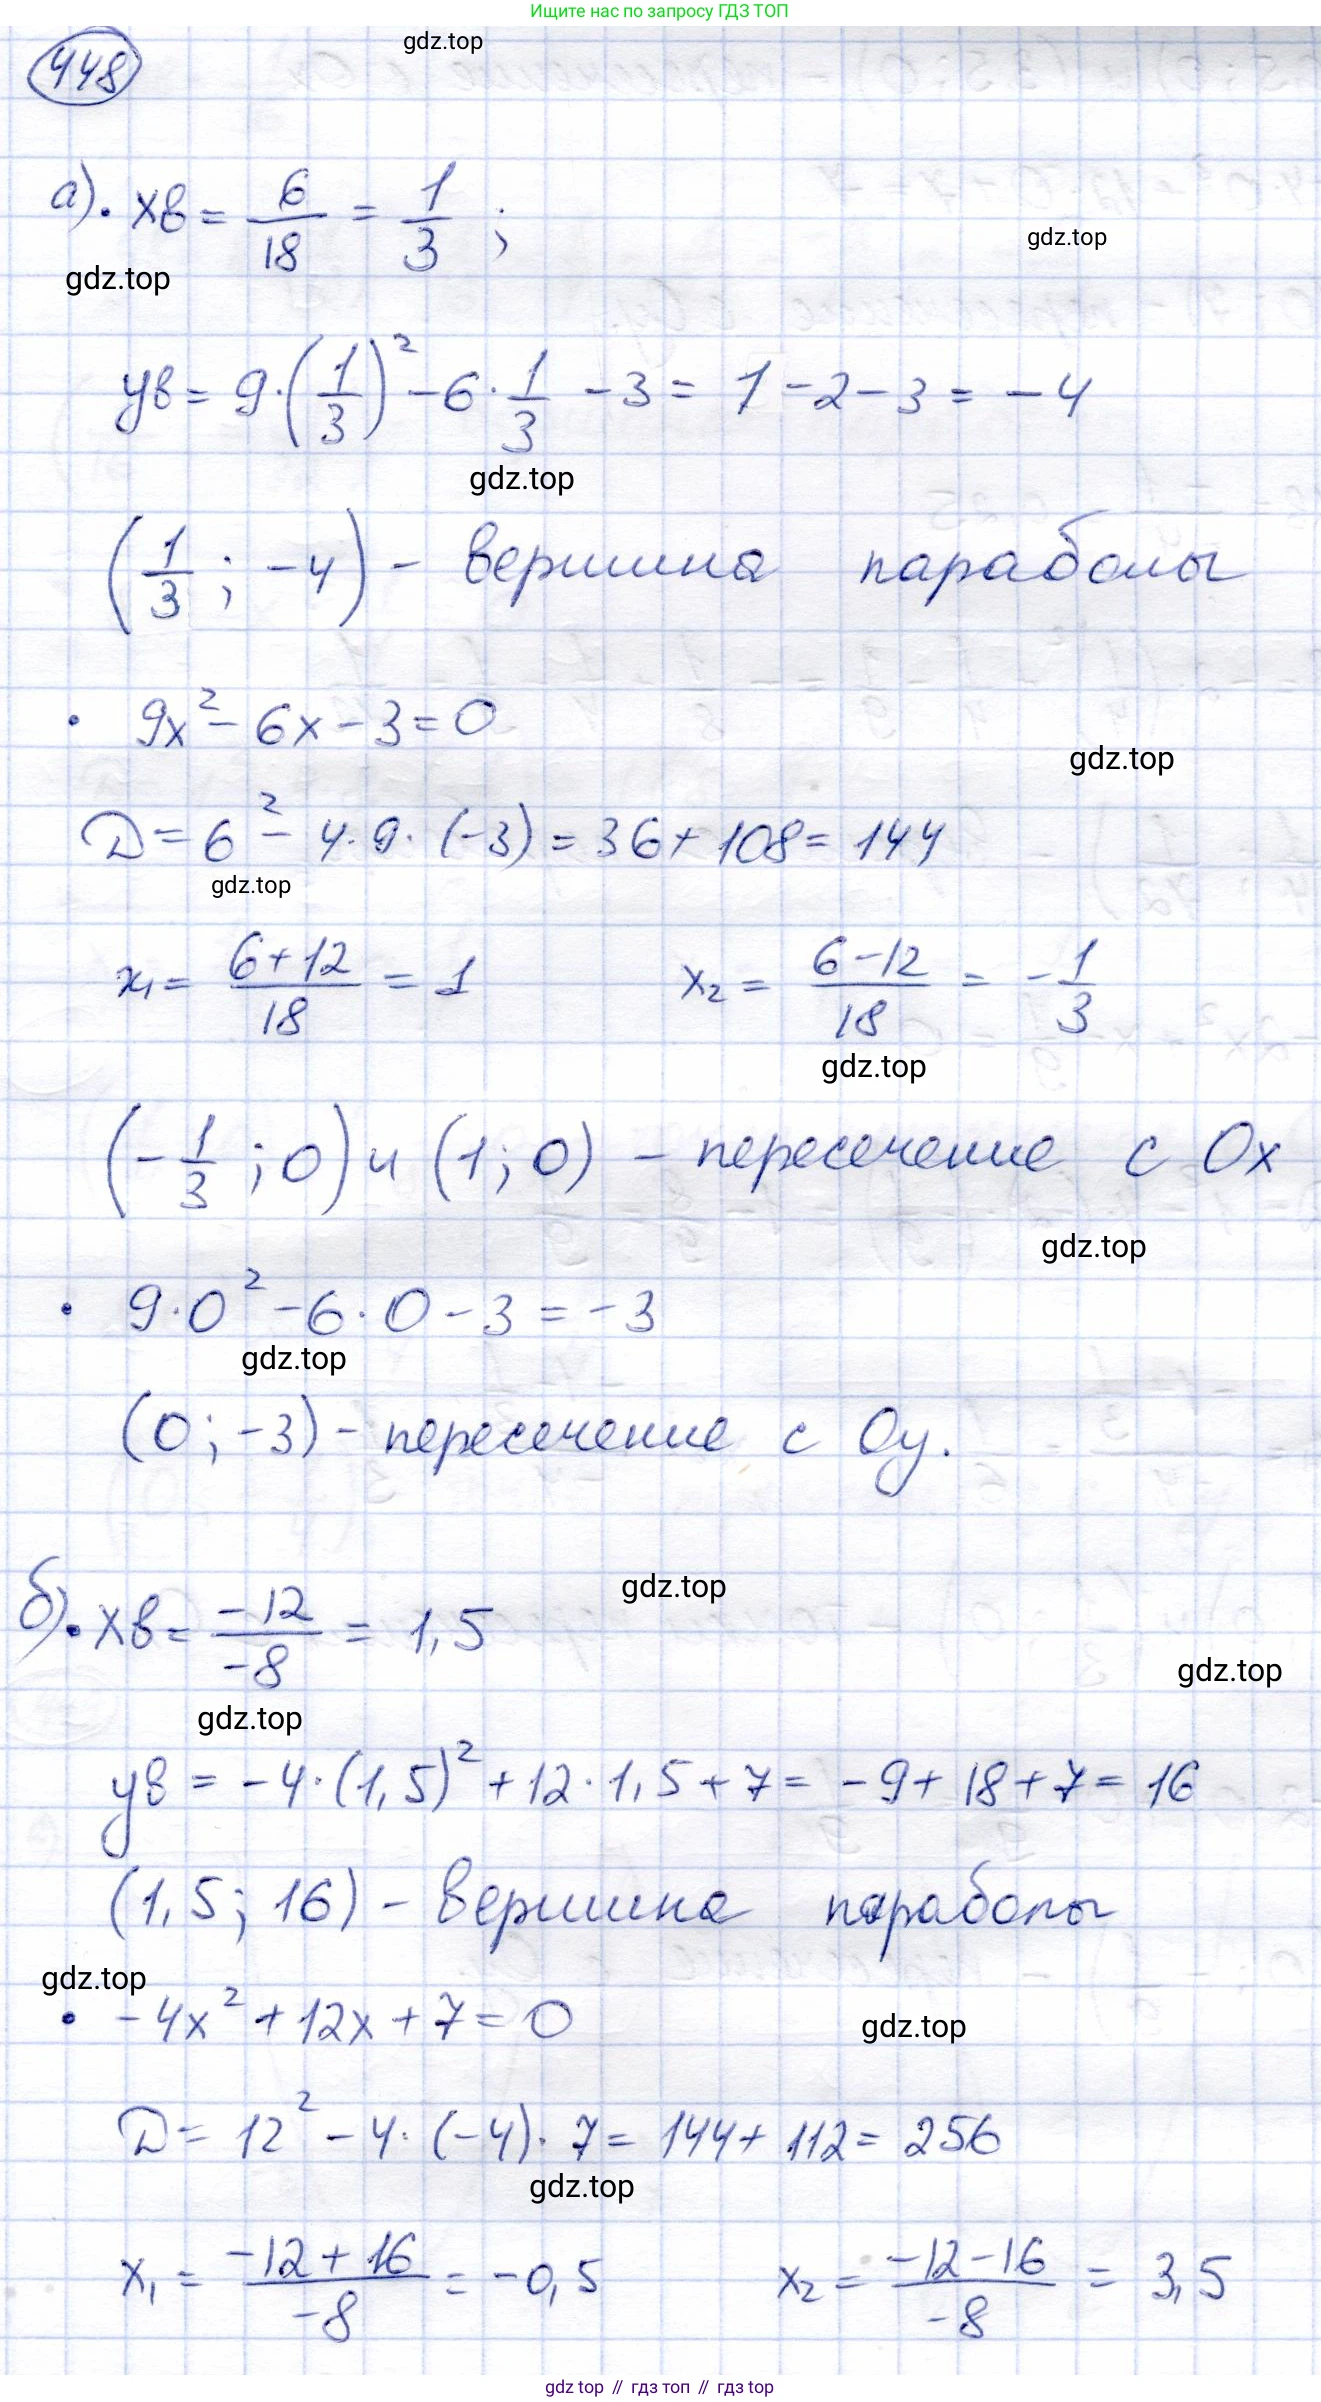 Ищите нас по запросу ГДЗ ТОП
448
gdz.top
а). xв = 6/18 = 1/3 ;
gdz.top
gdz.top
yв = 9·(1/3)² - 6·1/3 - 3 = 1 - 2 - 3 = -4
gdz.top
(1/3 ; -4) - вершина параболы
· 9x² - 6x - 3 = 0
gdz.top
D = 6² - 4·9·(-3) = 36 + 108 = 144
gdz.top
x₁ = (6+12)/18 = 1 x₂ = (6-12)/18 = -1/3
gdz.top
(-1/3 ; 0) и (1; 0) - пересечение с Ox
gdz.top
· 9·0² - 6·0 - 3 = -3
gdz.top
(0; -3) - пересечение с Oy.
gdz.top
б). xв = -12/-8 = 1,5
gdz.top
gdz.top
yв = -4·(1,5)² + 12·1,5 + 7 = -9 + 18 + 7 = 16
(1,5; 16) - вершина параболы
gdz.top
· -4x² + 12x + 7 = 0
gdz.top
D = 12² - 4·(-4)·7 = 144 + 112 = 256
gdz.top
x₁ = (-12+16)/-8 = -0,5 x₂ = (-12-16)/-8 = 3,5
gdz top // гдз топ // гдз top